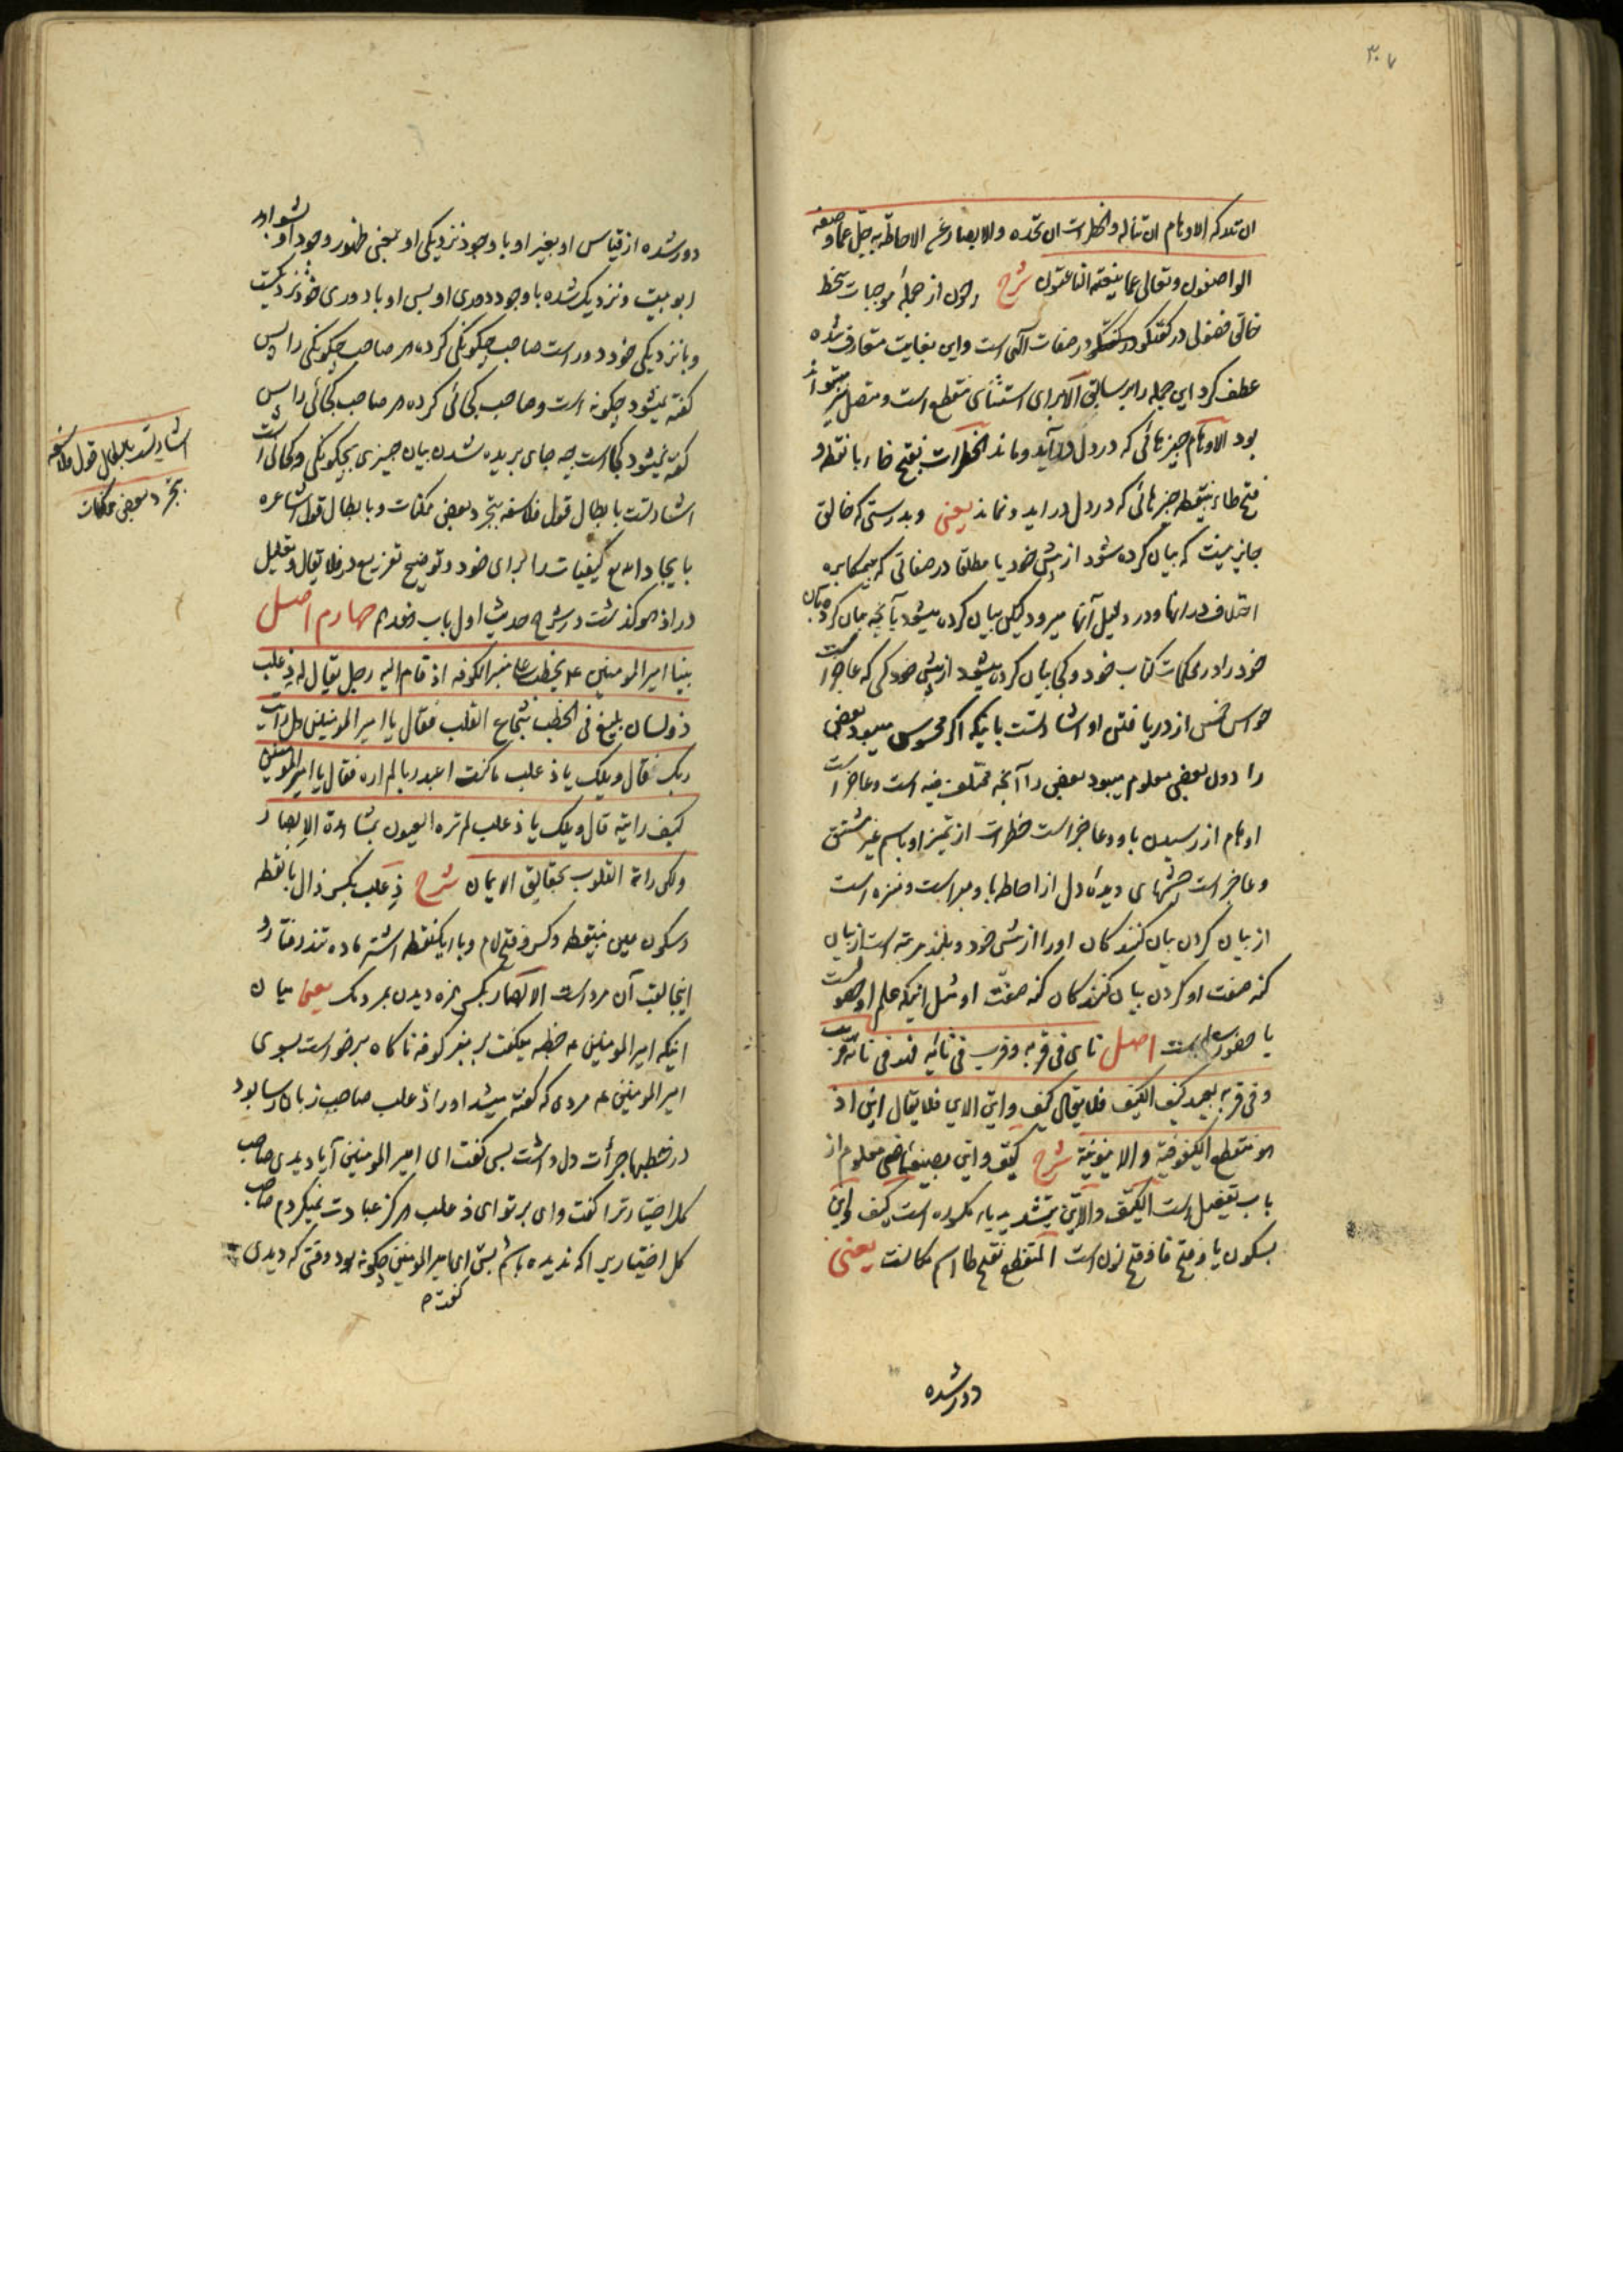 ۳۰۷
ان تدرکه الاوهام ان تناله والخطرات ان تحده والابصار عن الاحاطة به جل عما وصفه
الواصفون وتعالی عما ینعته الناعتون شرح چون از جملهٔ موجبات سخط
خالق فضولی در گفتگو در صفات الهی است و این بغایت متعارف شده
عطف کرد این جمله را بر سابق الا برای استثنای منقطع است و متصل نیز میتواند
بود الاوهام چیزهائی که در دل درآید و ماند الخطرات بفتح خاء با نقطه و
فتح طاء بینقطه چیزهائی که در دل دراید و نماند یعنی و بدرستی که خالق
جایز نیست که بیان کرده شود از پیش خود یا مطلقا در صفاتی که بیمکابره
اختلاف در انها و در دلیل آنها میرود لیکن بیان کرده میشود بآنچه بیان کرده بآن
خود را در محکمات کتاب خود و کجا بیان کرده میشود از پیش خود کسی که عاجز است
حواس خمس از دریافتن او اشارتست باینکه اگر محسوس میبود بعضی
را دون بعضی معلوم میبود بعضی را آنچه مختلف فیه است و عاجز است
اوهام از رسیدن باو و عاجز است خطرات از تمیز او باسم غیر مشتق
و عاجز است چشمهای دیدهٔ دل از احاطه باو مبراست و منزه است
از بیان کردن بیان کنندگان او را از پیش خود و بلند مرتبه است از بیان
کنه صفت او کردن بیان کنندگان کنه صفت او مثل اینکه علم او حصولیست
یا حضوریست اصل نای فی قربه وقرب فی نائیه فهو فی نائه قریب
وفی قربه بعید کیف الکیف فلا یقال کیف واین الاین فلا یقال این اذ
هو منقطع الکیفوفیة والاینونیة شرح کیف و این بصیغهٔ ماضی معلوم از
باب تفعیل است الکیف والاین بتشدید یاء مکسوره است کیف و این
بسکون یا و فتح فا و فتح نون است المنقطع بفتح طا اسم مکانست یعنی
دور شده
دور شده از قیاس او بغیر او با وجود نزدیکی او بمعنی ظهور وجود او و شواهد
ربوبیت و نزدیک شده با وجود دوری او پس او با دوری خود نزدیکست
و با نزدیکی خود دور است صاحب چگونگی کرده هر صاحب چگونگی را پس
گفته نمیشود چگونه است و صاحب کجائی کرده هر صاحب کجائی را پس
گفته نمیشود کجا است چه جای بریده شدن بیان چیزی بچگونگی و کجائی است
اشارتست بابطال قول فلاسفه بتجرد بعض ممکنات و بابطال قول اشاعره
بایجاد الله تع کیفیات را برای خود و توضیح تفریع در فلا یقال و تعلیل
در اذ هو گذشت در شرح حدیث اول باب هفدهم چهارم اصل
بینا امیرالمومنین ع یخطب علی منبر الکوفه اذ قام الیه رجل یقال له ذعلب
ذو لسان بلیغ فی الخطب شجاع القلب فقال یا امیرالمومنین هل رایت
ربک فقال ویلک یا ذعلب ما کنت اعبد ربا لم اره فقال یا امیرالمومنین
کیف رایته قال ویلک یا ذعلب لم تره العیون بمشاهدة الابصار
ولکن راته القلوب بحقایق الایمان شرح ذعلب بکسر ذال بانقطه
و سکون عین بینقطه و کسر و فتح لام و با ایکنقطه اشتر ماده تند رفتار و
اینجا لقب آن مرد است الابصار بکسر همزه دیدن بمردمک یعنی میان
اینکه امیرالمومنین ع خطبه میگفت بر منبر کوفه ناگاه برخواست بسوی
امیرالمومنین ع مردی که گفته میشد او را ذعلب صاحب زبان رسا بود
در خطبها جرأت دل داشت پس گفت ای امیرالمومنین آیا دیدی صاحب
کل اختیارت را گفت وای بر تو ای ذعلب هرگز عبادت نمیکردم صاحب
کل اختیاریرا که ندیده باشم پس ای امیرالمومنین چگونه بود وقتی که دیدی
گفت
اشارتست بابطال قول فلاسفه
بتجرد بعض ممکنات